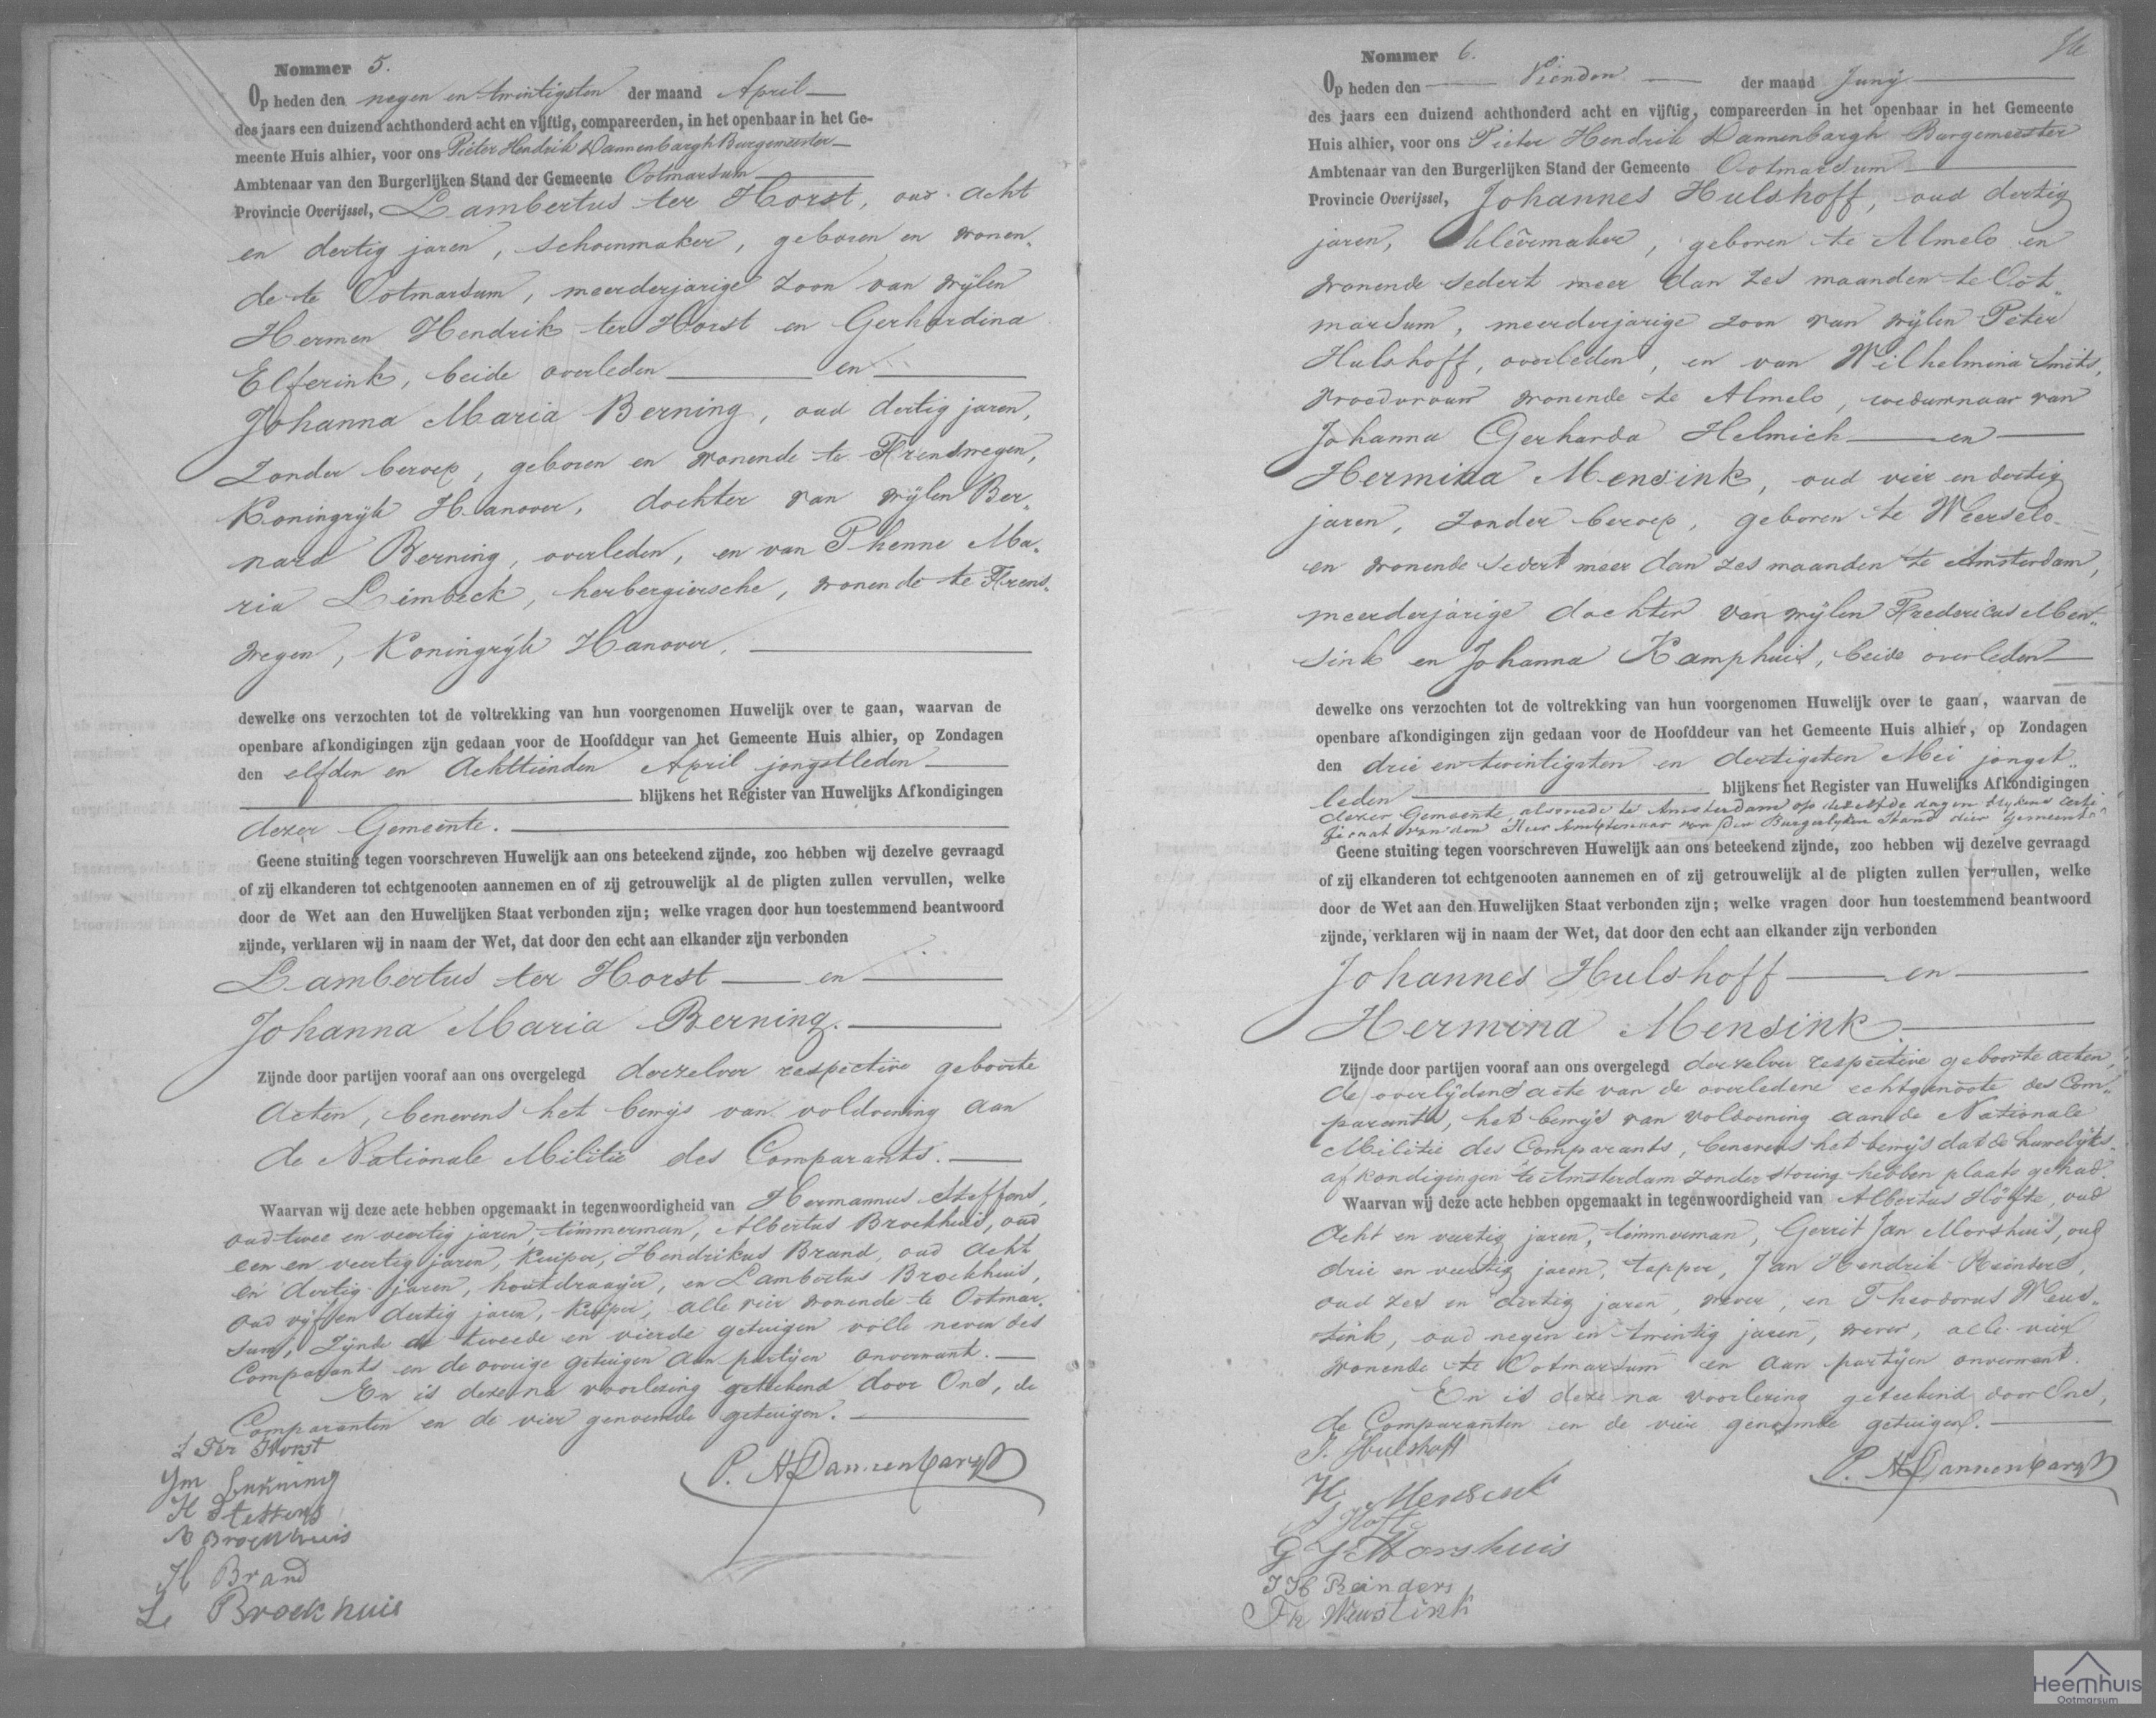 Nommer 5.
Op heden den negen en twintigsten der maand April
des jaars een duizend achthonderd acht en vijftig, compareerden, in het openbaar in het Ge-
meente Huis alhier, voor ons Pieter Hendrik Dannenbargh Burgemeester
Ambtenaar van den Burgerlijken Stand der Gemeente Ootmarsum
Provincie Overijssel, Lambertus ter Horst, oud acht
en dertig jaren, schoenmaker, geboren en wonen„
de te Ootmarsum, meerderjarige zoon van wijlen
Hermen Hendrik ter Horst en Gerhardina
Elferink, beide overleden en
Johanna Maria Berning, oud dertig jaren,
zonder beroep, geboren en wonende te Frenswegen,
Koningrijk Hanover, dochter van wijlen Ber„
nard Berning, overleden, en van Phenne Ma„
ria Leimbeck, herbergiersche, wonende te Frens„
wegen, Koningrijk Hanover.
dewelke ons verzochten tot de voltrekking van hun voorgenomen Huwelijk over te gaan, waarvan de
openbare afkondigingen zijn gedaan voor de Hoofddeur van het Gemeente Huis alhier, op Zondagen
den elfden en achttienden April jongstleden
blijkens het Register van Huwelijks Afkondigingen
dezer Gemeente.
Geene stuiting tegen voorschreven Huwelijk aan ons beteekend zijnde, zoo hebben wij dezelve gevraagd
of zij elkanderen tot echtgenooten aannemen en of zij getrouwelijk al de pligten zullen vervullen, welke
door de Wet aan den Huwelijken Staat verbonden zijn; welke vragen door hun toestemmend beantwoord
zijnde, verklaren wij in naam der Wet, dat door den echt aan elkander zijn verbonden
Lambertus ter Horst en
Johanna Maria Berning.
Zijnde door partijen vooraf aan ons overgelegd derzelver respective geboorte
acten, benevens het bewijs van voldoening aan
de Nationale Militie des Comparants.
Waarvan wij deze acte hebben opgemaakt in tegenwoordigheid van Hermannus Steffens,
oud twee en veertig jaren, timmerman, Albertus Broekhuis, oud
een en veertig jaren, kuiper, Hendrikus Brand, oud acht
en dertig jaren, houtdraaijer, en Lambertus Broekhuis,
oud vijf en dertig jaren, kuiper, alle vier wonende te Ootmar„
sum, zijnde de tweede en vierde getuigen volle neven des
Comparants en de overige getuigen aan partijen onverwant.
En is deze na voorlezing geteekend door Ons, de
Comparanten en de vier genoemde getuigen.
L Ter Horst
P. H. Dannenbargh
JM Berning
H Steffens
A Broekhuis
H Brand
L Broekhuis
Nommer 6.
Op heden den Vierden der maand Junij
des jaars een duizend achthonderd acht en vijftig, compareerden in het openbaar in het Gemeente
Huis alhier, voor ons Pieter Hendrik Dannenbargh Burgemeester
Ambtenaar van den Burgerlijken Stand der Gemeente Ootmarsum
Provincie Overijssel, Johannes Hulshoff, oud dertig
jaren, kleêrmaker, geboren te Almelo en
wonende sedert meer dan zes maanden te Oot„
marsum, meerderjarige zoon van wijlen Peter
Hulshoff, overleden, en van Wilhelmina Smits,
vroedvrouw wonende te Almelo, weduwnaar van
Johanna Gerharda Helmich en
Hermina Mensink, oud vier en dertig
jaren, zonder beroep, geboren te Weerselo
en wonende sedert meer dan zes maanden te Amsterdam,
meerderjarige dochter van wijlen Fredericus Men„
sink en Johanna Kamphuis, beide overleden
dewelke ons verzochten tot de voltrekking van hun voorgenomen Huwelijk over te gaan, waarvan de
openbare afkondigingen zijn gedaan voor de Hoofddeur van het Gemeente Huis alhier, op Zondagen
den drie en twintigsten en dertigsten Mei jongst„
leden blijkens het Register van Huwelijks Afkondigingen
dezer Gemeente, alsmede te Amsterdam op dezelfde dagen blijkens certi„
ficaat van den Heer Ambtenaar van den Burgerlijken Stand dier Gemeente
Geene stuiting tegen voorschreven Huwelijk aan ons beteekend zijnde, zoo hebben wij dezelve gevraagd
of zij elkanderen tot echtgenooten aannemen en of zij getrouwelijk al de pligten zullen vervullen, welke
door de Wet aan den Huwelijken Staat verbonden zijn; welke vragen door hun toestemmend beantwoord
zijnde, verklaren wij in naam der Wet, dat door den echt aan elkander zijn verbonden
Johannes Hulshoff en
Hermina Mensink.
Zijnde door partijen vooraf aan ons overgelegd derzelver respective geboorte acten,
de overlijdensacte van de overledene echtgenoote des Com„
parants, het bewijs van voldoening aan de Nationale
Militie des Comparants, benevens het bewijs dat de huwelijks„
afkondigingen te Amsterdam zonder storing hebben plaats gehad.
Waarvan wij deze acte hebben opgemaakt in tegenwoordigheid van Albertus Höfte, oud
acht en veertig jaren, timmerman, Gerrit Jan Morshuis, oud
drie en veertig jaren, tapper, Jan Hendrik Reinders,
oud zes en dertig jaren, wever, en Theodorus Weus„
tink, oud negen en twintig jaren, wever, alle vier
wonende te Ootmarsum en aan partijen onverwant.
En is deze na voorlezing geteekend door Ons,
de Comparanten en de vier genoemde getuigen.
J. Hulshoff
P. H. Dannenbargh
H. Mensink
A Höfte
G J Morshuis
J H Reinders
Th Weustink
Heemhuis
Ootmarsum